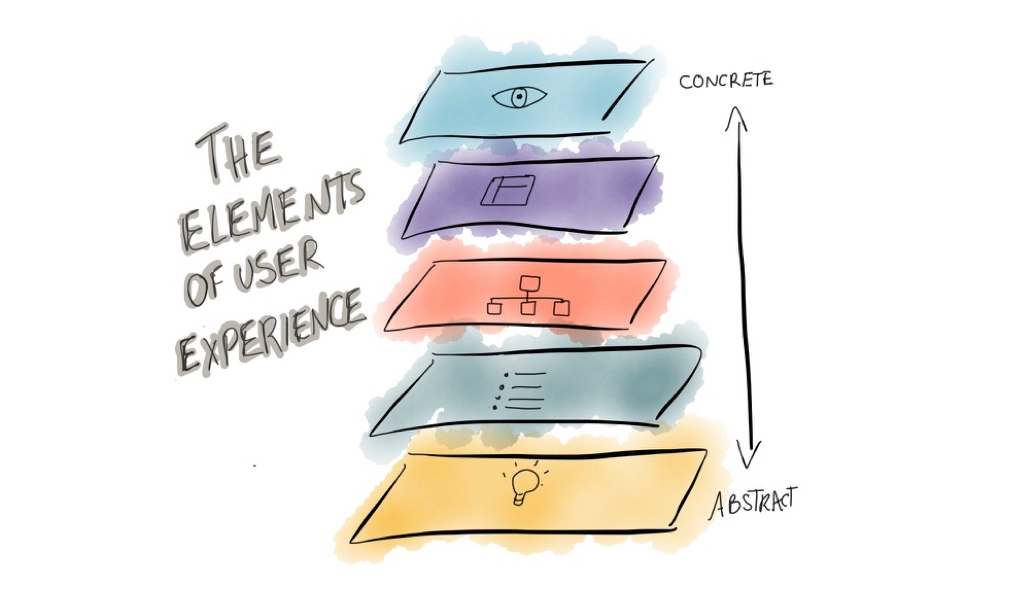 THE
ELEMENTS
OF USER
EXPERIENCE
CONCRETE
ABSTRACT